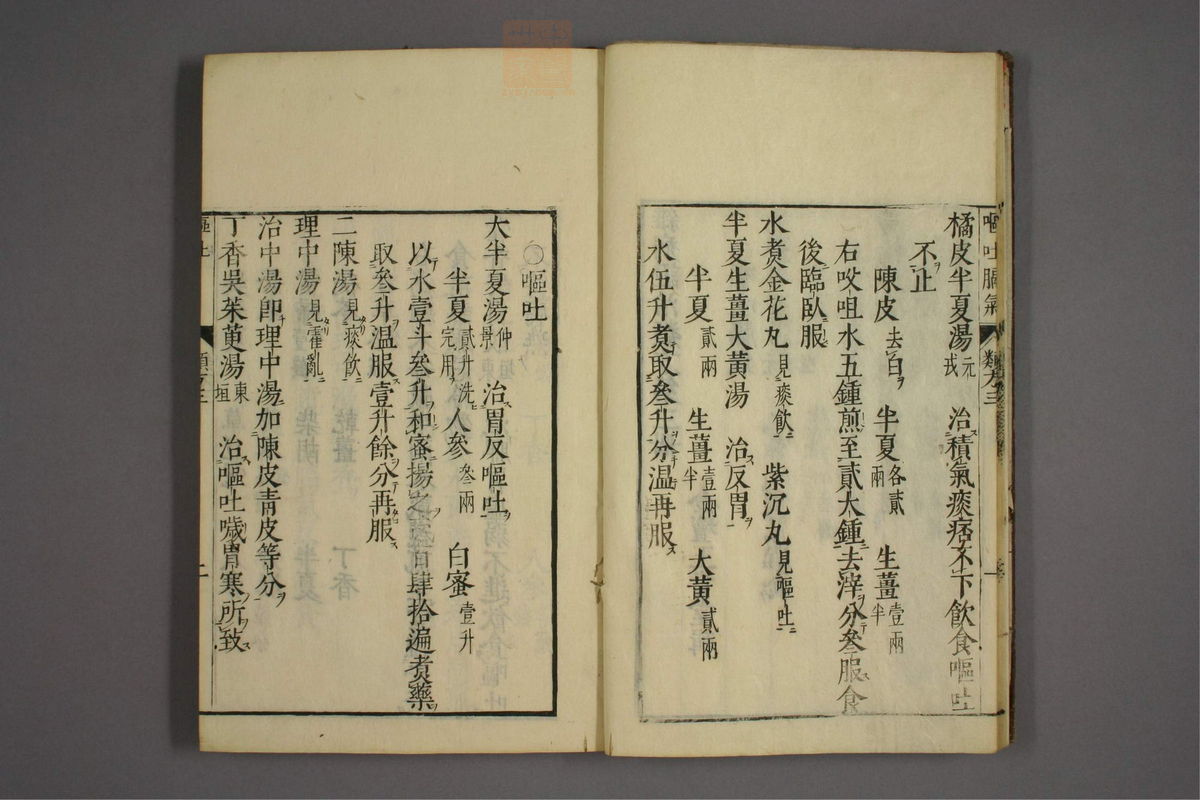 嘔吐膈氣 類方三 一
橘皮半夏湯元戎 治積氣痰痞不下飲食嘔吐
不止
陳皮去白 半夏各貳兩 生薑壹兩半
右㕮咀水五鍾煎至貳大鍾去滓分叄服食
後臨臥服
水煑金花丸見痰飲 紫沉丸見嘔吐
半夏生薑大黃湯 治反胃
半夏貳兩 生薑壹兩半 大黃貳兩
水伍升煑取叄升分温再服
○嘔吐
大半夏湯仲景 治胃反嘔吐
半夏貳升洗完用 人參叄兩 白蜜壹升
以水壹斗叄升和蜜揚之貳百肆拾遍煑藥
取叄升温服壹升餘分再服
二陳湯見痰飲
理中湯見霍亂
治中湯卽理中湯加陳皮靑皮等分
丁香吳茱萸湯東垣 治嘔吐噦胃寒所致
嘔吐 類方三 二